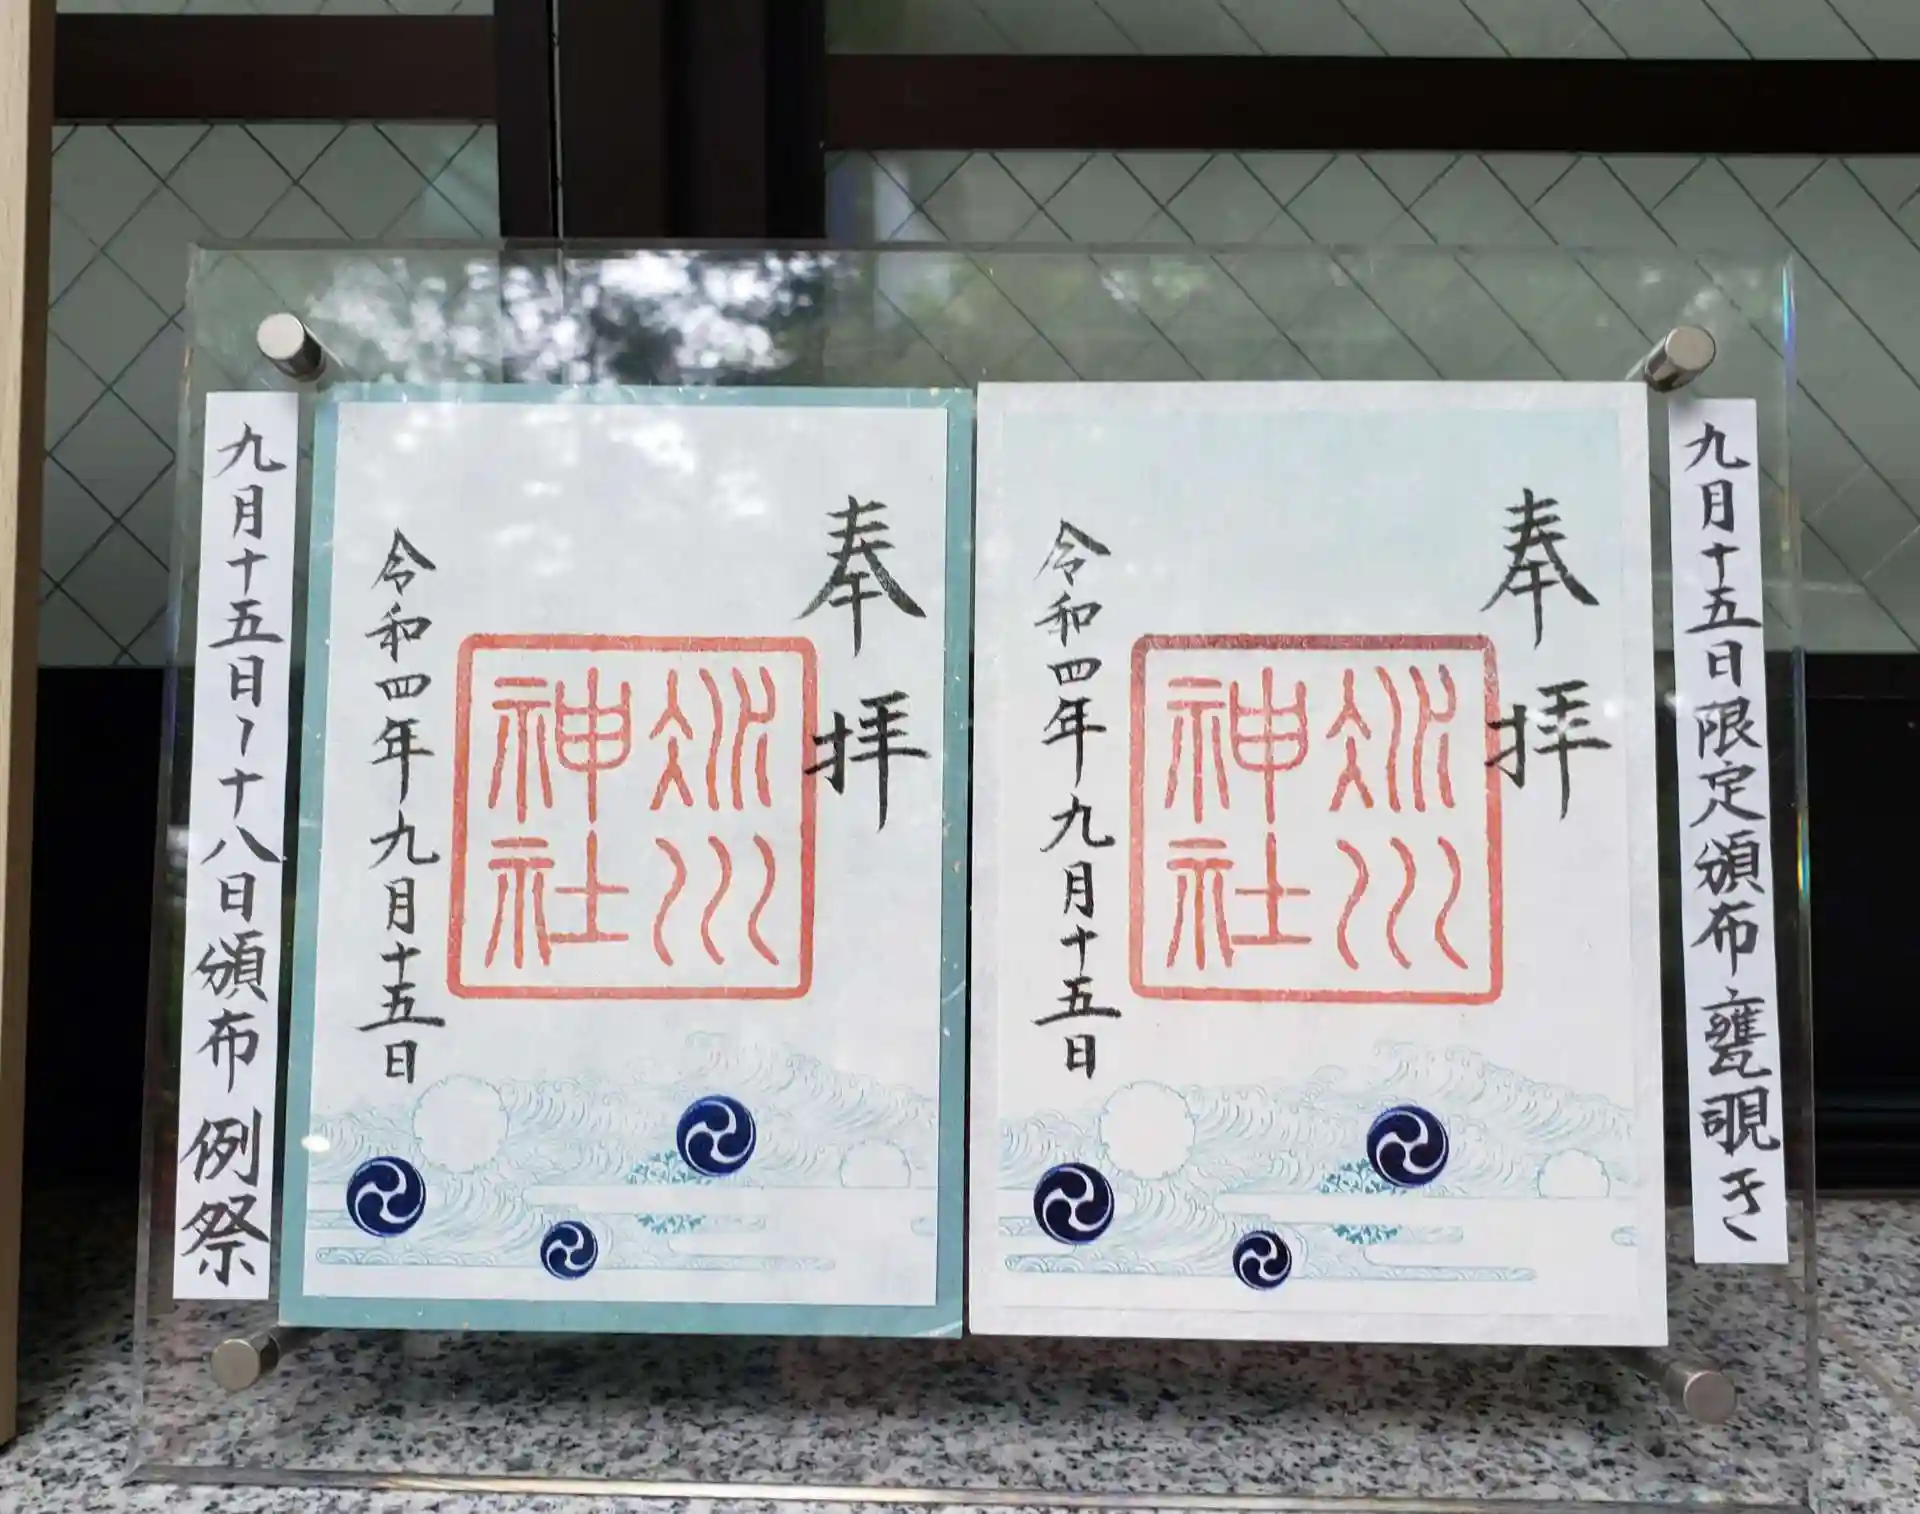 九月十五日限定頒布 甕覗き
奉拝
氷川
神社
令和四年九月十五日
奉拝
氷川
神社
令和四年九月十五日
九月十五日~十八日頒布 例祭